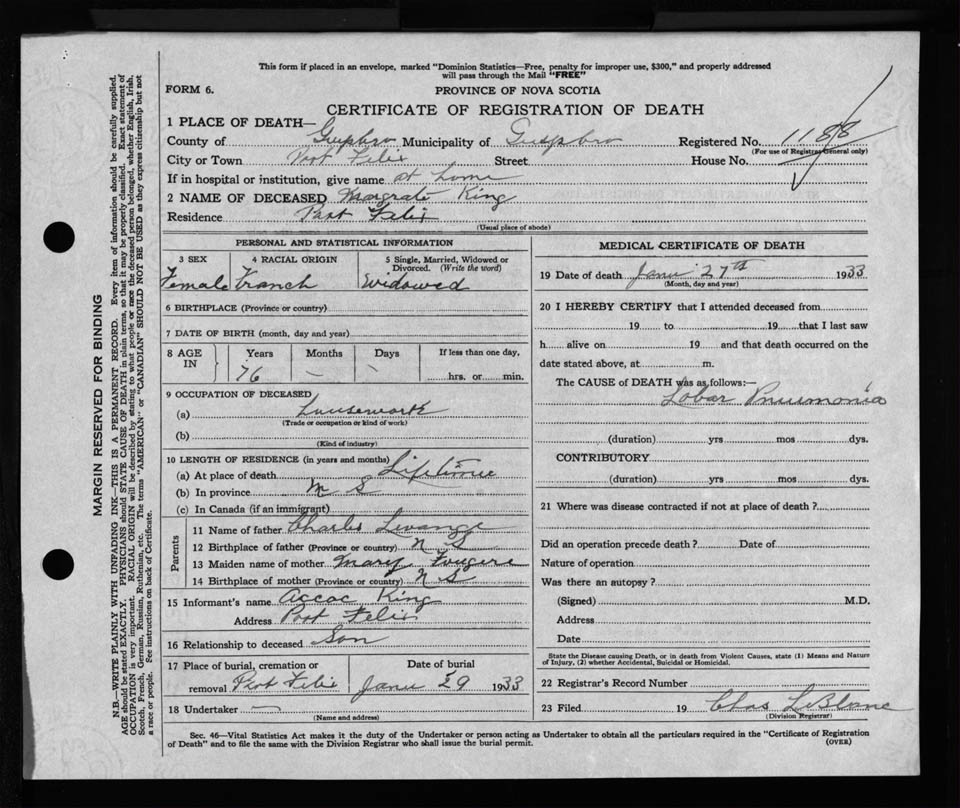 This form if placed in an envelope, marked "Dominion Statistics—Free, penalty for improper use, $300," and properly addressed
will pass through the Mail "FREE"
FORM 6.
PROVINCE OF NOVA SCOTIA
CERTIFICATE OF REGISTRATION OF DEATH
1 PLACE OF DEATH—
County of Guysbro Municipality of Guysbro Registered No. 1188
(For use of Registrar General only)
City or Town Port Felix Street House No.
If in hospital or institution, give name at home
2 NAME OF DECEASED Margrate King
Residence Port Felix
(Usual place of abode)
PERSONAL AND STATISTICAL INFORMATION
3 SEX 4 RACIAL ORIGIN 5 Single, Married, Widowed or
Divorced. (Write the word)
Female Franch Widowed
6 BIRTHPLACE (Province or country)
7 DATE OF BIRTH (month, day and year)
8 AGE IN Years Months Days If less than one day,
76 — — hrs. or min.
9 OCCUPATION OF DECEASED
(a) Housework
(Trade or occupation or kind of work)
(b)
(Kind of industry)
10 LENGTH OF RESIDENCE (in years and months)
(a) At place of death Lifetime
(b) In province N S
(c) In Canada (if an immigrant)
Parents
11 Name of father Charles Levange
12 Birthplace of father (Province or country) N S
13 Maiden name of mother Mary Fougere
14 Birthplace of mother (Province or country) N S
15 Informant's name King
Address Port Felix
16 Relationship to deceased Son
17 Place of burial, cremation or Date of burial
removal Port Felix Janu 29 1933
18 Undertaker —
(Name and address)
MEDICAL CERTIFICATE OF DEATH
19 Date of death Janu 27th 1933
(Month, day and year)
20 I HEREBY CERTIFY that I attended deceased from
19 to 19 that I last saw
h alive on 19 and that death occurred on the
date stated above, at m.
The CAUSE OF DEATH was as follows:—
Lobar Pneumonia
(duration) yrs mos dys.
CONTRIBUTORY
(duration) yrs mos dys.
21 Where was disease contracted if not at place of death?
Did an operation precede death? Date of
Nature of operation
Was there an autopsy?
(Signed) M.D.
Address
Date
State the Disease causing Death, or in death from Violent Causes, state (1) Means and Nature
of Injury, (2) whether Accidental, Suicidal or Homicidal.
22 Registrar's Record Number
23 Filed 19 Chas LeBlanc
(Division Registrar)
Sec. 46—Vital Statistics Act makes it the duty of the Undertaker or person acting as Undertaker to obtain all the particulars required in the "Certificate of Registration
of Death" and to file the same with the Division Registrar who shall issue the burial permit.
(OVER)
MARGIN RESERVED FOR BINDING
N.B.—WRITE PLAINLY WITH UNFADING INK—THIS IS A PERMANENT RECORD. Every item of information should be carefully supplied.
AGE should be stated EXACTLY. PHYSICIANS should STATE CAUSE OF DEATH in plain terms, so that it may be properly classified. Exact statement of
OCCUPATION is very important. RACIAL ORIGIN will be described by stating to what people or race the deceased person belonged, whether English, Irish,
Scotch, French, German, Russian, Ruthenian, etc. The terms "AMERICAN" or "CANADIAN" SHOULD NOT BE USED as they express citizenship but not
a race or people. See instructions on back of Certificate.